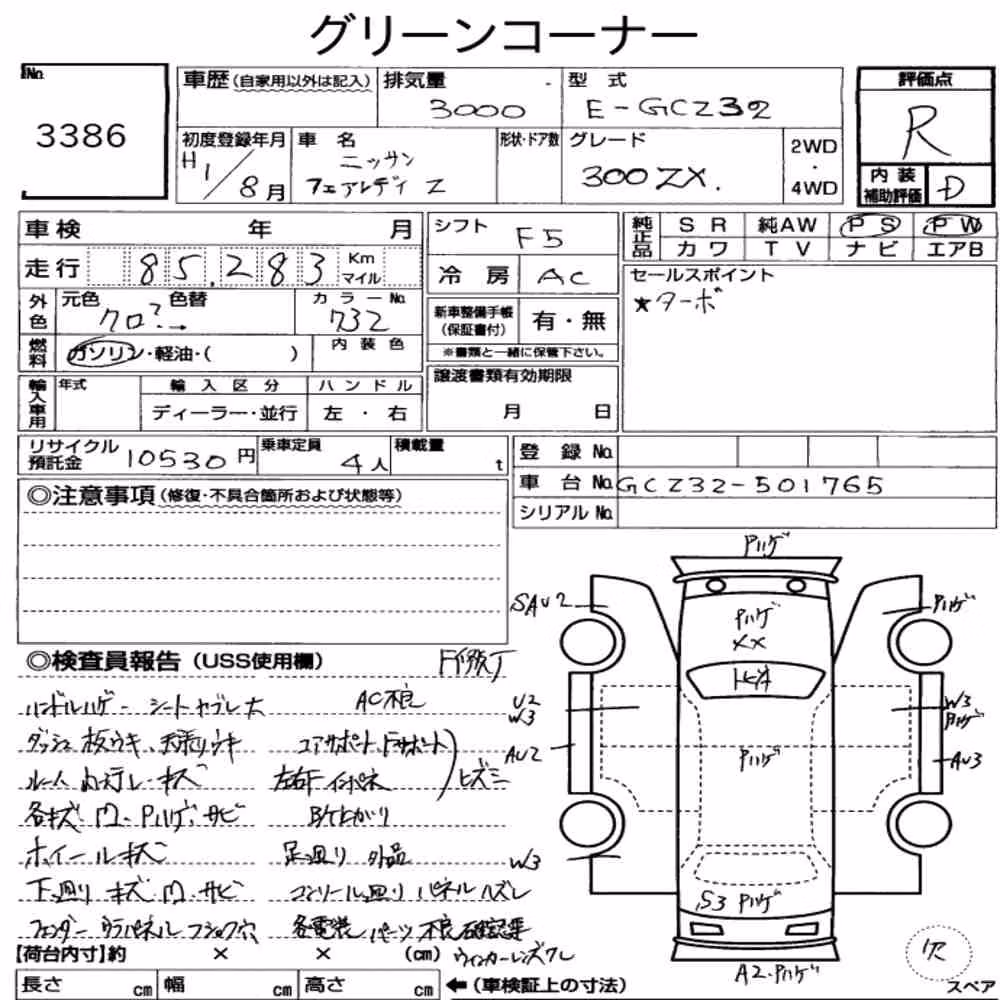 グリーンコーナー
No.
3386
車歴(自家用以外は記入)
排気量
3000
型式
E-GCZ32
評価点
R
初度登録年月
H1/8月
車名
ニッサン
フェアレディ Z
形状・ドア数
グレード
300ZX.
2WD
・
4WD
内装
補助評価
D
車検 年 月
シフト
F5
純正品
SR 純AW PS PW
カワ TV ナビ エアB
走行 85,283 Km
マイル
冷房
AC
セールスポイント
★ターボ
外色
元色 色替
クロ?→
カラーNo.
732
新車整備手帳
(保証書付)
有・無
※書類と一緒に保管下さい。
燃料
ガソリン・軽油・( )
内装色
譲渡書類有効期限
月 日
輸入車用
年式
輸入区分
ディーラー・並行
ハンドル
左・右
リサイクル
預託金
10530円
乗車定員
4人
積載量
t
登録No.
車台No. GCZ32-501765
シリアルNo.
◎注意事項(修復・不具合箇所および状態等)
◎検査員報告(USS使用欄)
ハンドルハゲ シートヤブレ大
AC不良
ダッシュ板ウキ、天張りウキ
コアサポート、Fサポート
ルーム内汚レ・キズ
左右Fインパネ
ヒズミ
各キズ・凹・Pハゲ・サビ
ホイールキズ
足廻り 外品
下廻り キズ・凹・サビ
コンソール廻り パネルハズレ
フェンダー ウラパネル フショク穴
各電装 パーツ不良 確認要
ウィンカーレンズワレ
Pハゲ
SAU2
Pハゲ
XX
Pハゲ
トビ石
U2
W3
W3
Pハゲ
AU2
Pハゲ
AU3
W3
S3 Pハゲ
A2・Pハゲ
欠
スペア
【荷台内寸】約 × × (cm)
長さ cm 幅 cm 高さ cm
←(車検証上の寸法)